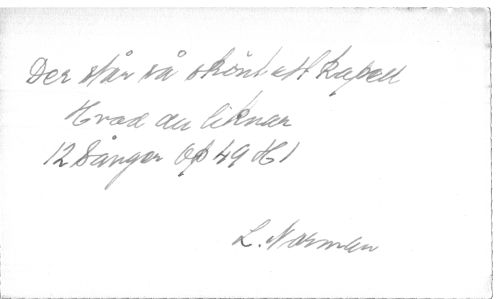 Der står så skönt ett kapell
Hvad du liknar
12 Sånger Op 49 H 1
L. Norman